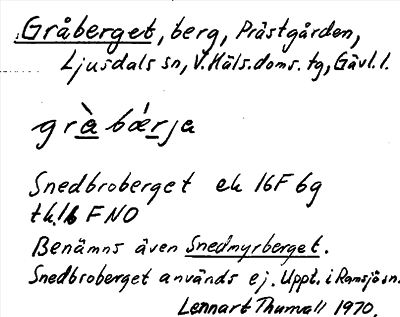 Gråberget, berg, Prästgården,
Ljusdals sn, V. Häls. doms. tg, Gävl. l.
grà bǽrja
Snedbroberget ek 16F 6g
tk. 16 F NO
Benämns även Snedmyrberget.
Snedbroberget används ej. Uppt. i Ramsjö sn.
Lennart Thumall 1970.